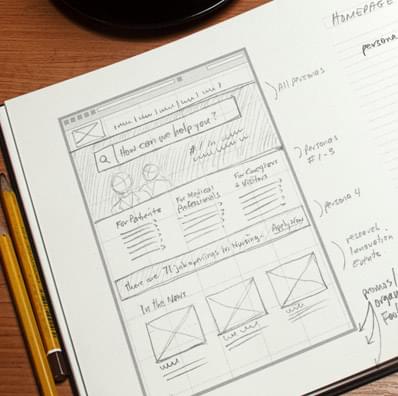 HOMEPAGE
persona
All personas
How can we help you?
personas
#1-3
For Patients
For Medical
Professionals
For Caregivers
& Visitors
persona 4
There are 71 job openings in Nursing. Apply Now
research
Innovation
Events
In the News
promos/